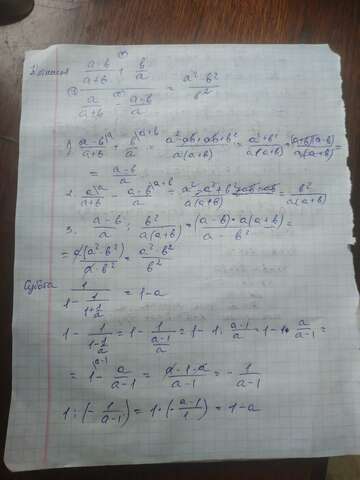 (a-b)/(a+b) + b/a
a/(a+b) - (a-b)/a = (a²-b²)/b²
1) (a-b)/(a+b) + b/a = (a²-ab+ab+b²)/(a(a+b)) = (a²+b²)/(a(a+b)) = ((a+b)(a-b))/(a(a+b)) =
= (a-b)/a
2. a/(a+b) - (a-b)/a = (a²-a²+b²)/(a(a+b)) = b²/(a(a+b))
3. (a-b)/a : b²/(a(a+b)) = ((a-b)·a(a+b))/(a·b²) =
= (a(a²-b²))/(a·b²) = (a²-b²)/b²
Субота 1/(1-1/(1+1/a)) = 1-a
1 - 1/(1-1/a) = 1 - 1/((a-1)/a) = 1-1:(a-1)/a = 1-1·a/(a-1) =
= 1 - a/(a-1) = (a-1-a)/(a-1) = -1/(a-1)
1:(-1/(a-1)) = 1·(-(a-1)/1) = 1-a